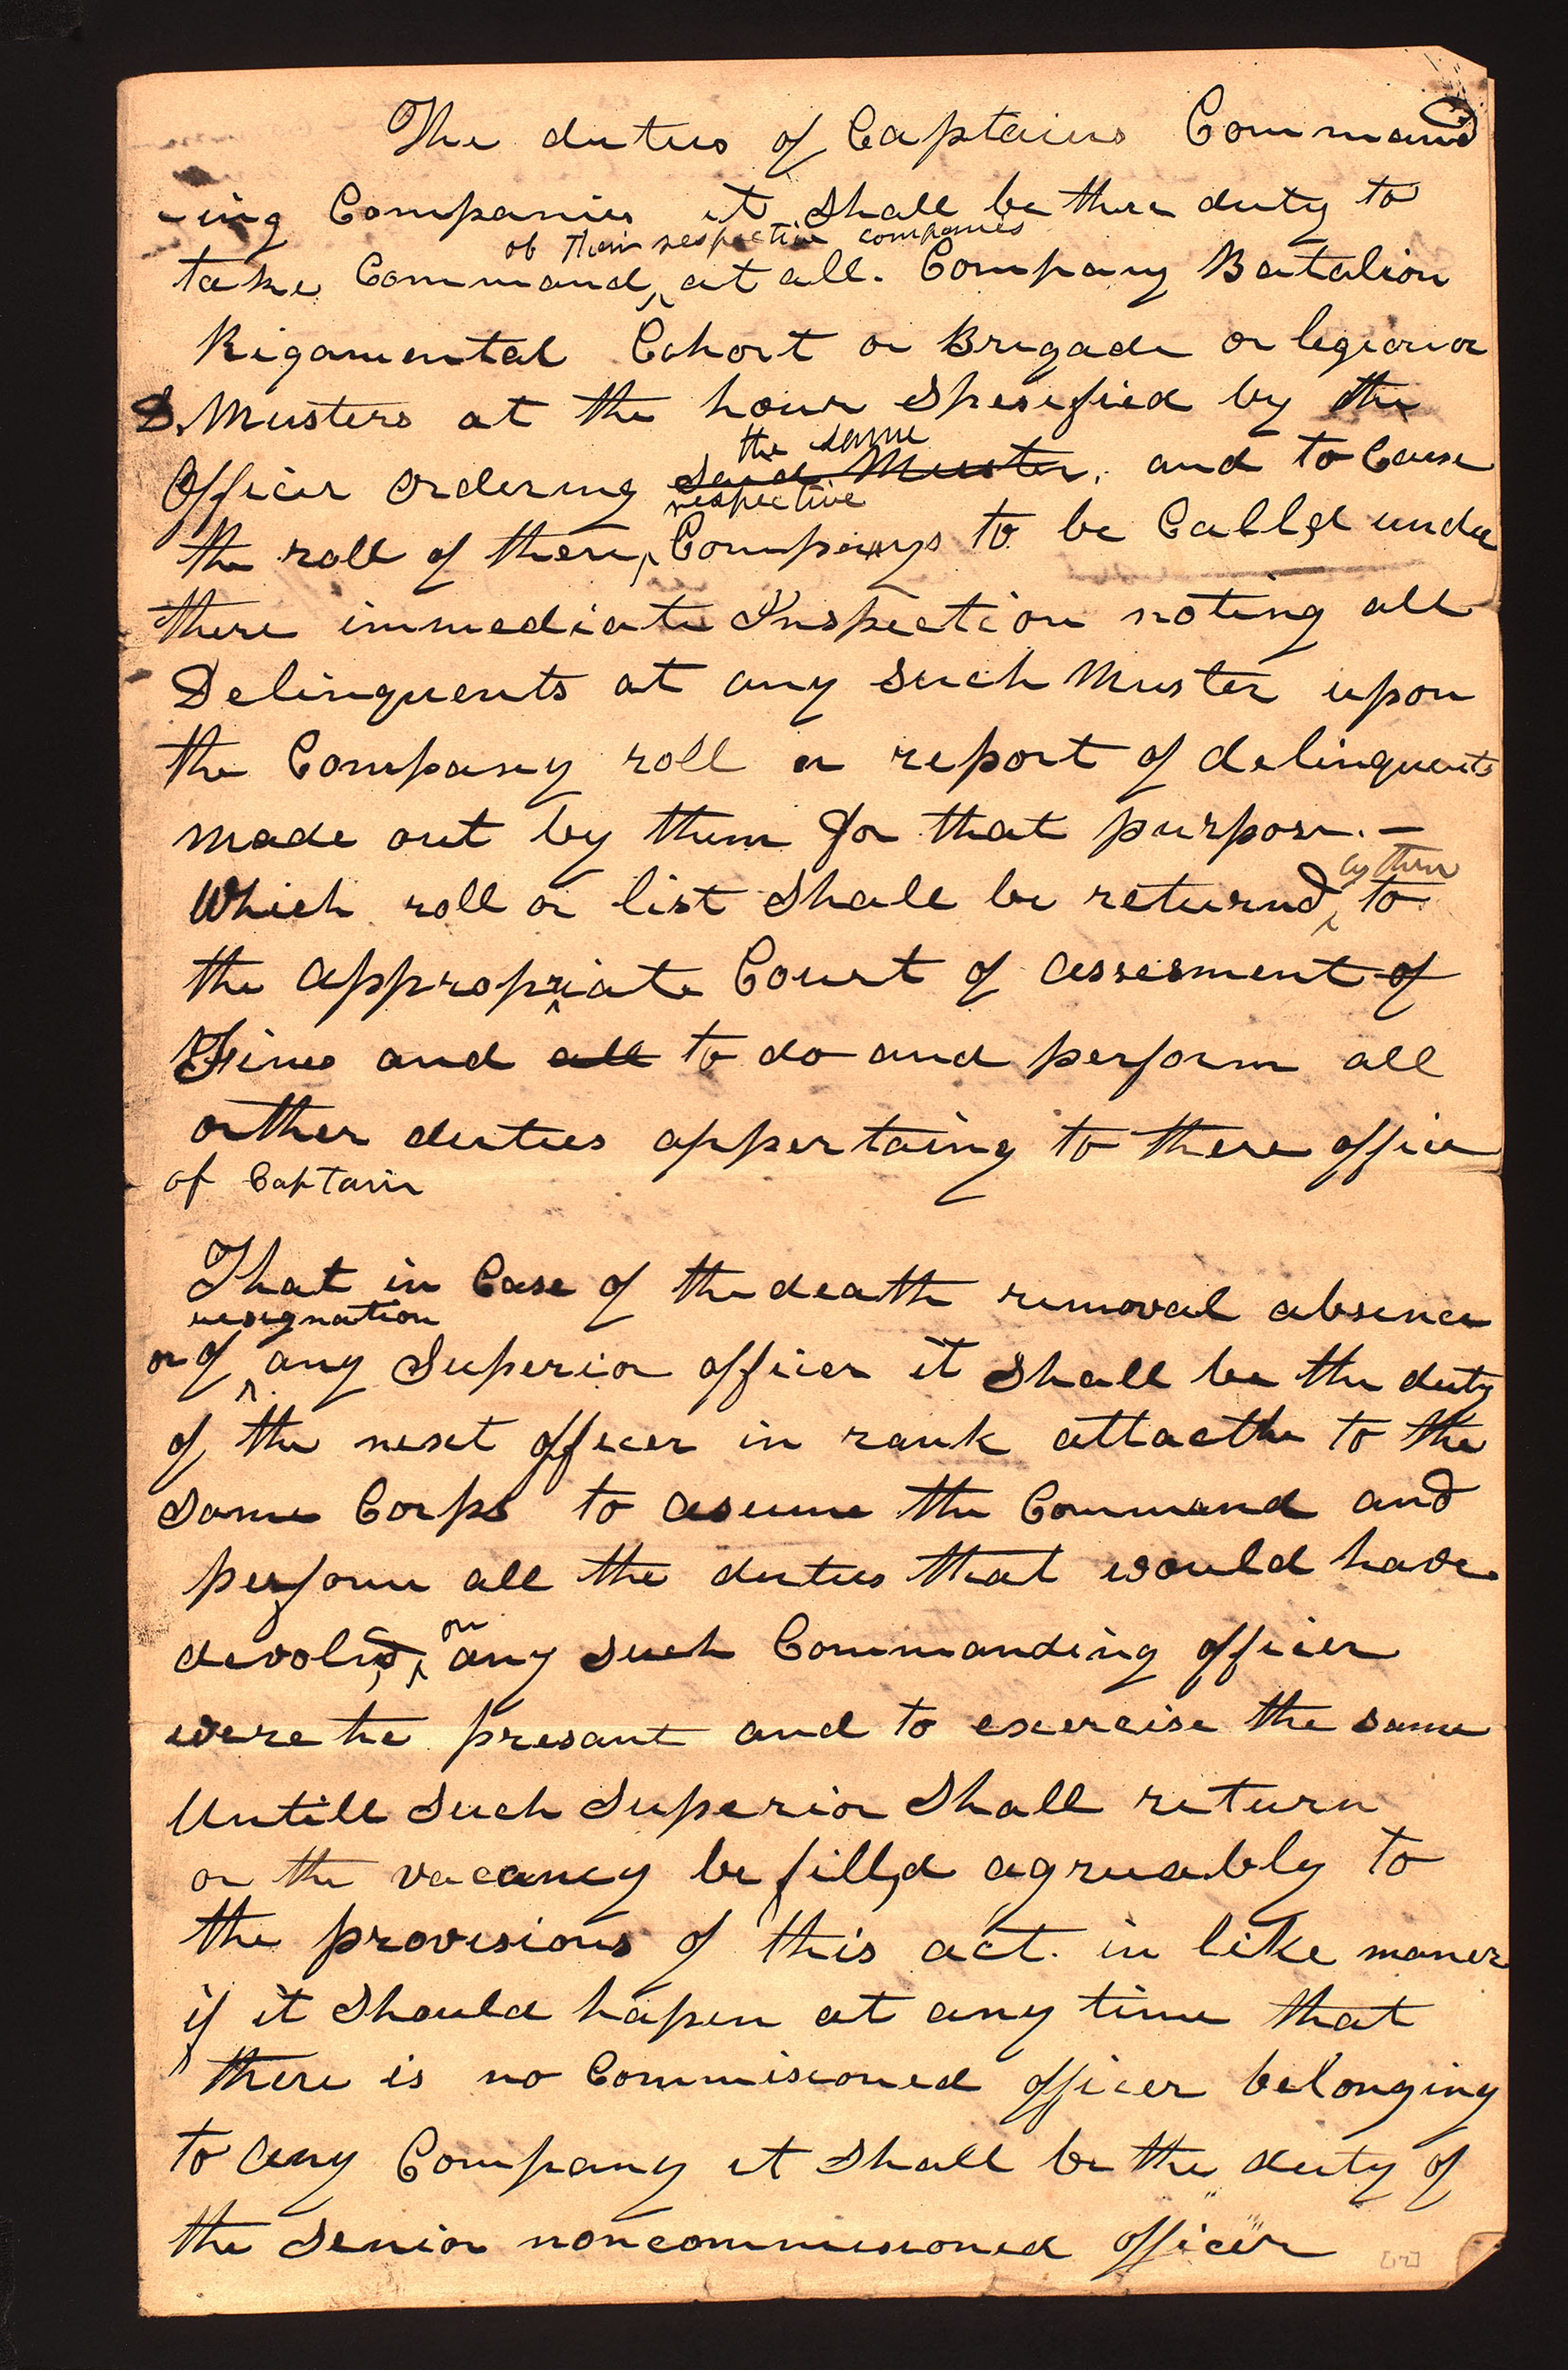 The duties of Captains Command
-ing Companies it Shall be there duty to
of their respective companies
take Command at all. Company Batalion
Rigamental Cohort or Brigade or legion or
D. Musters at the hour Spesified by the
the same
Officer Ordering said Muster. and to Cause
respective
the roll of there Companys to be Calld under
there immediate Inspection noting all
Delinquents at any such Muster upon
the Company roll or report of delinquents
made out by them for that purpose. —
by them
Which roll or list Shall be returnd to
the appropriate Court of assesment of
Fines and all to do and perform all
orther duties appertaing to there office
of Captain
That in Case of the death removal absence
resignation
or of any Superior officer it Shall be the duty
of the next officer in rank attacthe to the
Same Corps to asume the Command and
perform all the duties that would have
on
devolvd any such Commanding officer
were he presant and to exercise the same
Untill Such Superior Shall return
or the vacancy be filld agreeably to
the provisions of this act. in like maner
if it Should hapen at any time that
there is no Commisioned officer belonging
to any Company it Shall be the duty of
the Senior noncommisioned officer
[12]